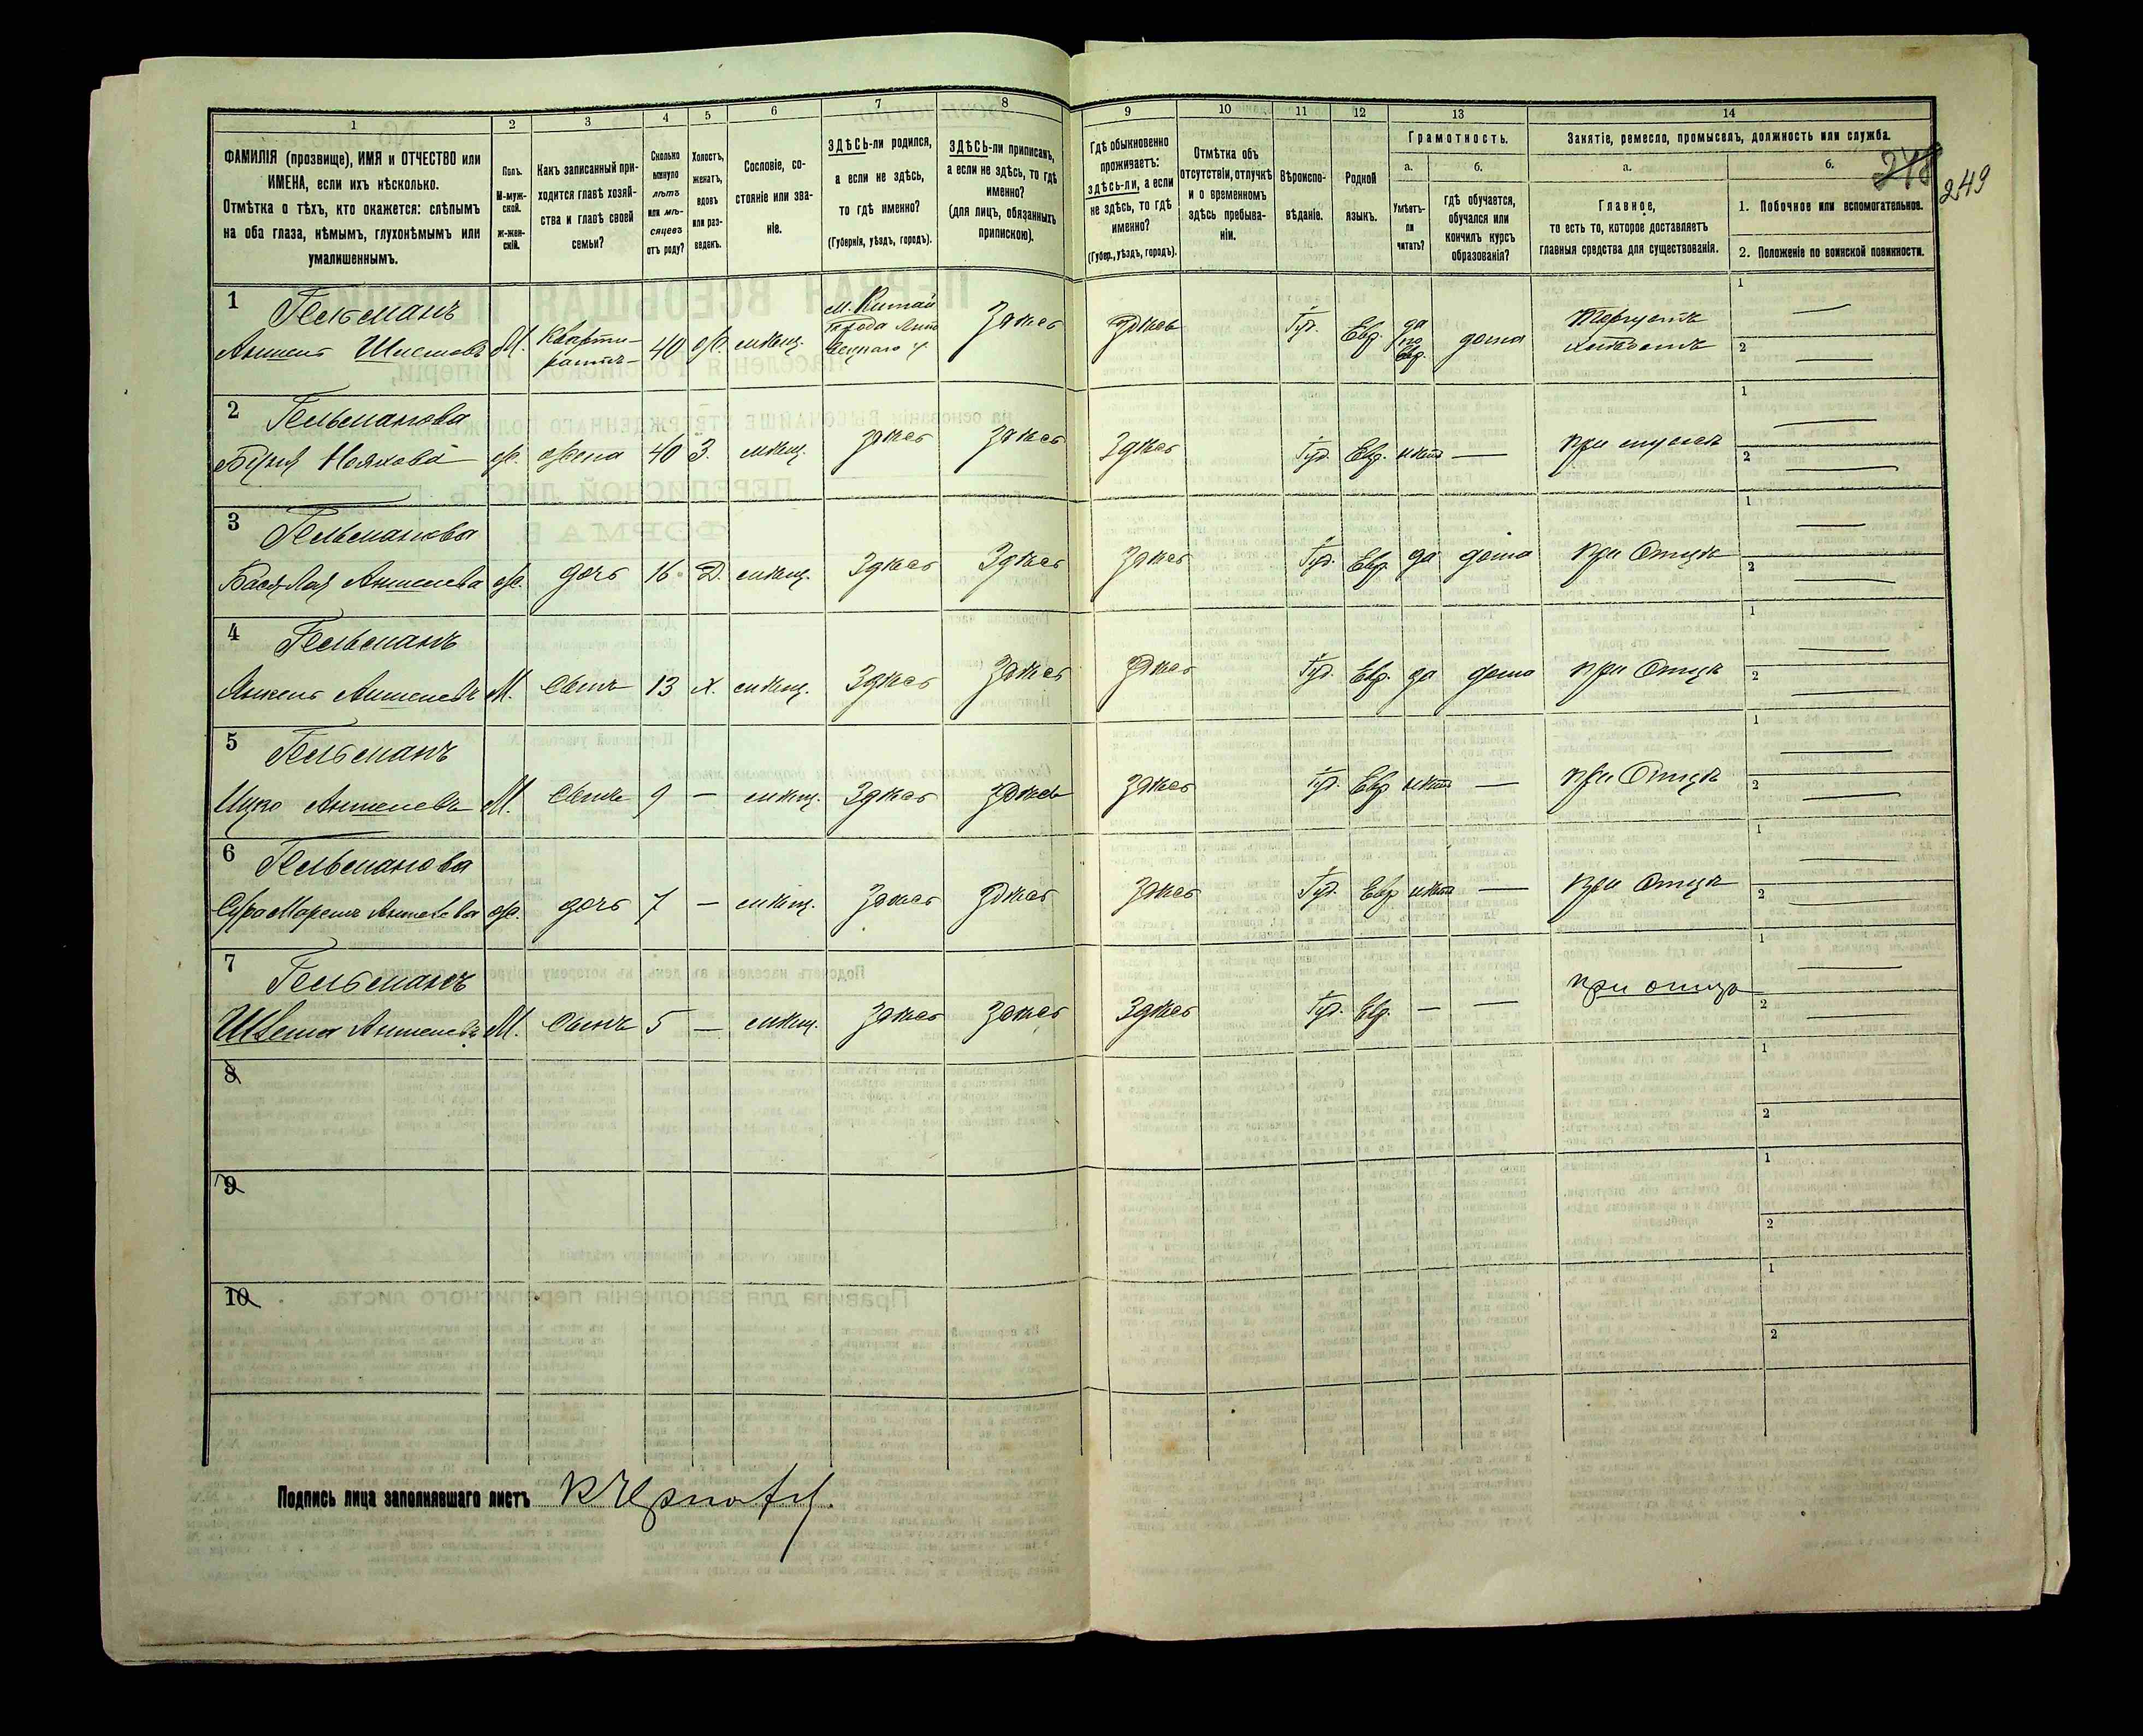 1
2
3
4
5
6
7
8
9
10
11
12
13
14
ФАМИЛІЯ (прозвище), ИМЯ и ОТЧЕСТВО или
ИМЕНА, если ихъ нѣсколько.
Отмѣтка о тѣхъ, кто окажется: слѣпымъ
на оба глаза, нѣмымъ, глухонѣмымъ или
умалишеннымъ.
Полъ.
М-муж-
ской.
ж-жен-
скій.
Какъ записанный при-
ходится главѣ хозяй-
ства и главѣ своей
семьи?
Сколько
минуло
лѣтъ
или мѣ-
сяцевъ
отъ роду?
Холостъ,
женатъ,
вдовъ
или раз-
веденъ.
Сословіе, со-
стояніе или зва-
ніе.
ЗДѢСЬ-ли родился,
а если не здѣсь,
то гдѣ именно?
(Губернія, уѣздъ, городъ).
ЗДѢСЬ-ли приписанъ,
а если не здѣсь, то гдѣ
именно?
(для лицъ, обязанныхъ
припискою).
Гдѣ обыкновенно
проживаетъ:
здѣсь-ли, а если
не здѣсь, то гдѣ
именно?
(Губер., уѣздъ, городъ).
Отмѣтка объ
отсутствіи, отлучкѣ
и о временномъ
здѣсь пребыва-
ніи.
Вѣроиспо-
вѣданіе.
Родной
языкъ.
Грамотность.
а.
б.
Умѣетъ-
ли
читать?
гдѣ обучается,
обучался или
кончилъ курсъ
образованія?
Занятіе, ремесло, промыселъ, должность или служба.
а.
б.
Главное,
то есть то, которое доставляетъ
главныя средства для существованія.
1. Побочное или вспомогательное.
2. Положеніе по воинской повинности.
248
249
1 Гельманъ
М. Кварти-
рантъ 40 Ж. мѣщ.
Здѣсь Здѣсь Іуд. Евр. да по Евр. дома
Торгуетъ
хлѣбомъ
1 —
2 —
2 Гельманова
ж. жена 40 З. мѣщ. здѣсь здѣсь Здѣсь Іуд. Евр. нѣтъ — при мужѣ
1 —
2 —
3 Гельманова
Бася-Лая Аншелева ж. дочь 16 Д. мѣщ. Здѣсь Здѣсь Здѣсь Іуд. Евр. да дома при Отцѣ
1 —
2 —
4 Гельманъ
Янкель Аншелевъ М. Сынъ 13 Х. мѣщ. Здѣсь Здѣсь Здѣсь Іуд. Евр. да дома при Отцѣ
1 —
2 —
5 Гельманъ
Ицко Аншелевъ М. Сынъ 9 — мѣщ. Здѣсь Здѣсь Здѣсь Іуд. Евр нѣтъ — при Отцѣ
1 —
2 —
6 Гельманова
Аншелева ж. дочь 7 — мѣщ. Здѣсь Здѣсь Здѣсь Іуд. Евр нѣтъ — при Отцѣ
1 —
2 —
7 Гельманъ
Аншелевъ М. Сынъ 5 — мѣщ. Здѣсь Здѣсь Здѣсь Іуд. Евр. — — при отцѣ
1 —
2 —
8
1
2
9
1
2
10
1
2
Подпись лица заполнявшаго листъ